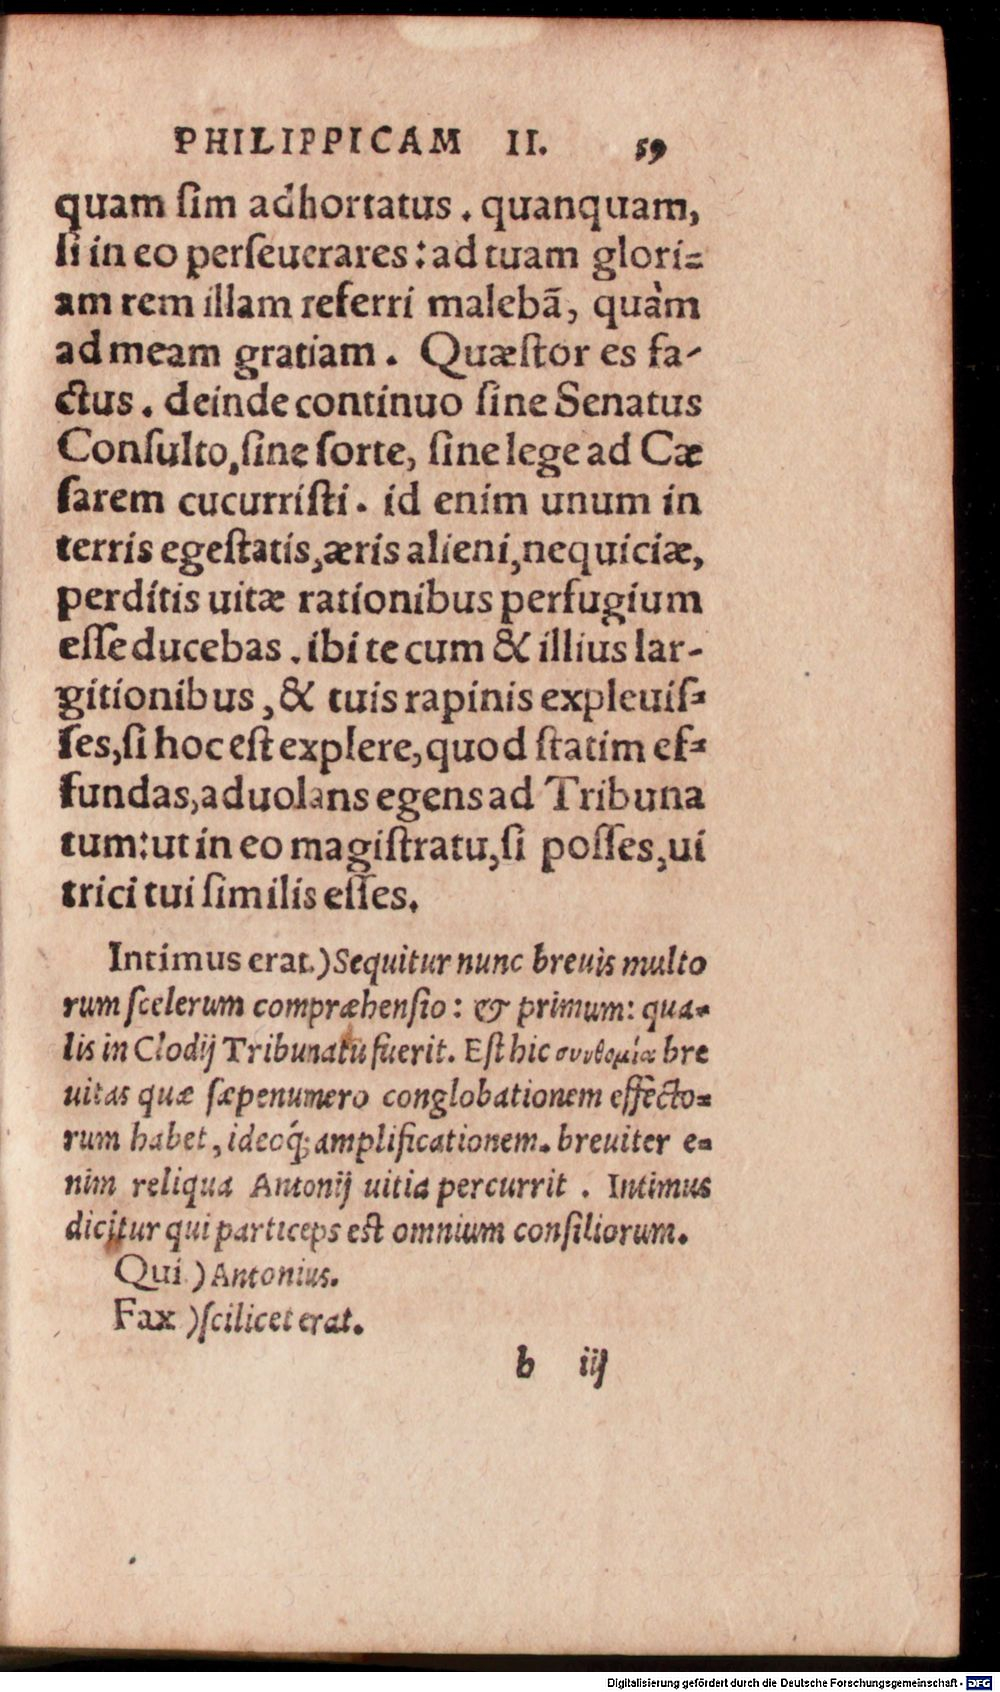 PHILIPPICAM II. 59
quam ſim adhortatus. quanquam,
ſi in eo perſeuerares: ad tuam glori=
am rem illam referri malebã, quàm
ad meam gratiam. Quæſtor es fa-
ctus. deinde continuo ſine Senatus
Conſulto, ſine ſorte, ſine lege ad Cæ
ſarem cucurriſti. id enim unum in
terris egeſtatis, æris alieni, nequiciæ,
perditis uitæ rationibus perfugium
eſſe ducebas. ibi te cum & illius lar-
gitionibus, & tuis rapinis expleuiſ=
ſes, ſi hoc eſt explere, quod ſtatim ef=
fundas, aduolans egens ad Tribuna
tum: ut in eo magiſtratu, ſi poſſes, ui
trici tui ſimilis eſſes.
Intimus erat.) Sequitur nunc breuis multo
rum ſcelerum compræhenſio: & primum: qua=
lis in Clodij Tribunatu fuerit. Eſt hic συνθομία bre
uitas quæ ſæpenumero conglobationem effecto=
rum habet, ideoq́; amplificationem. breuiter e=
nim reliqua Antonij uitia percurrit. Intimus
dicitur qui particeps eſt omnium conſiliorum.
Qui) Antonius.
Fax) ſcilicet erat.
b iij
Digitalisierung gefördert durch die Deutsche Forschungsgemeinschaft - DFG